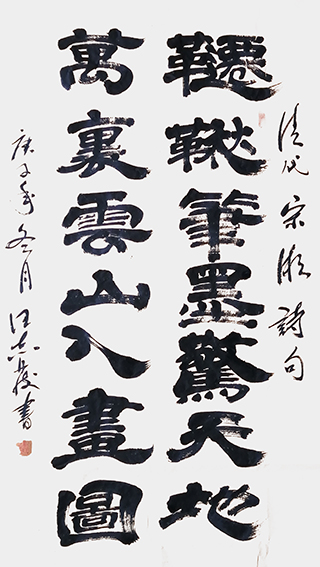 清代 宋湘 詩句
韆鞦筆墨驚天地
萬裏雲山入畫圖
庚子年 冬月 汪志書